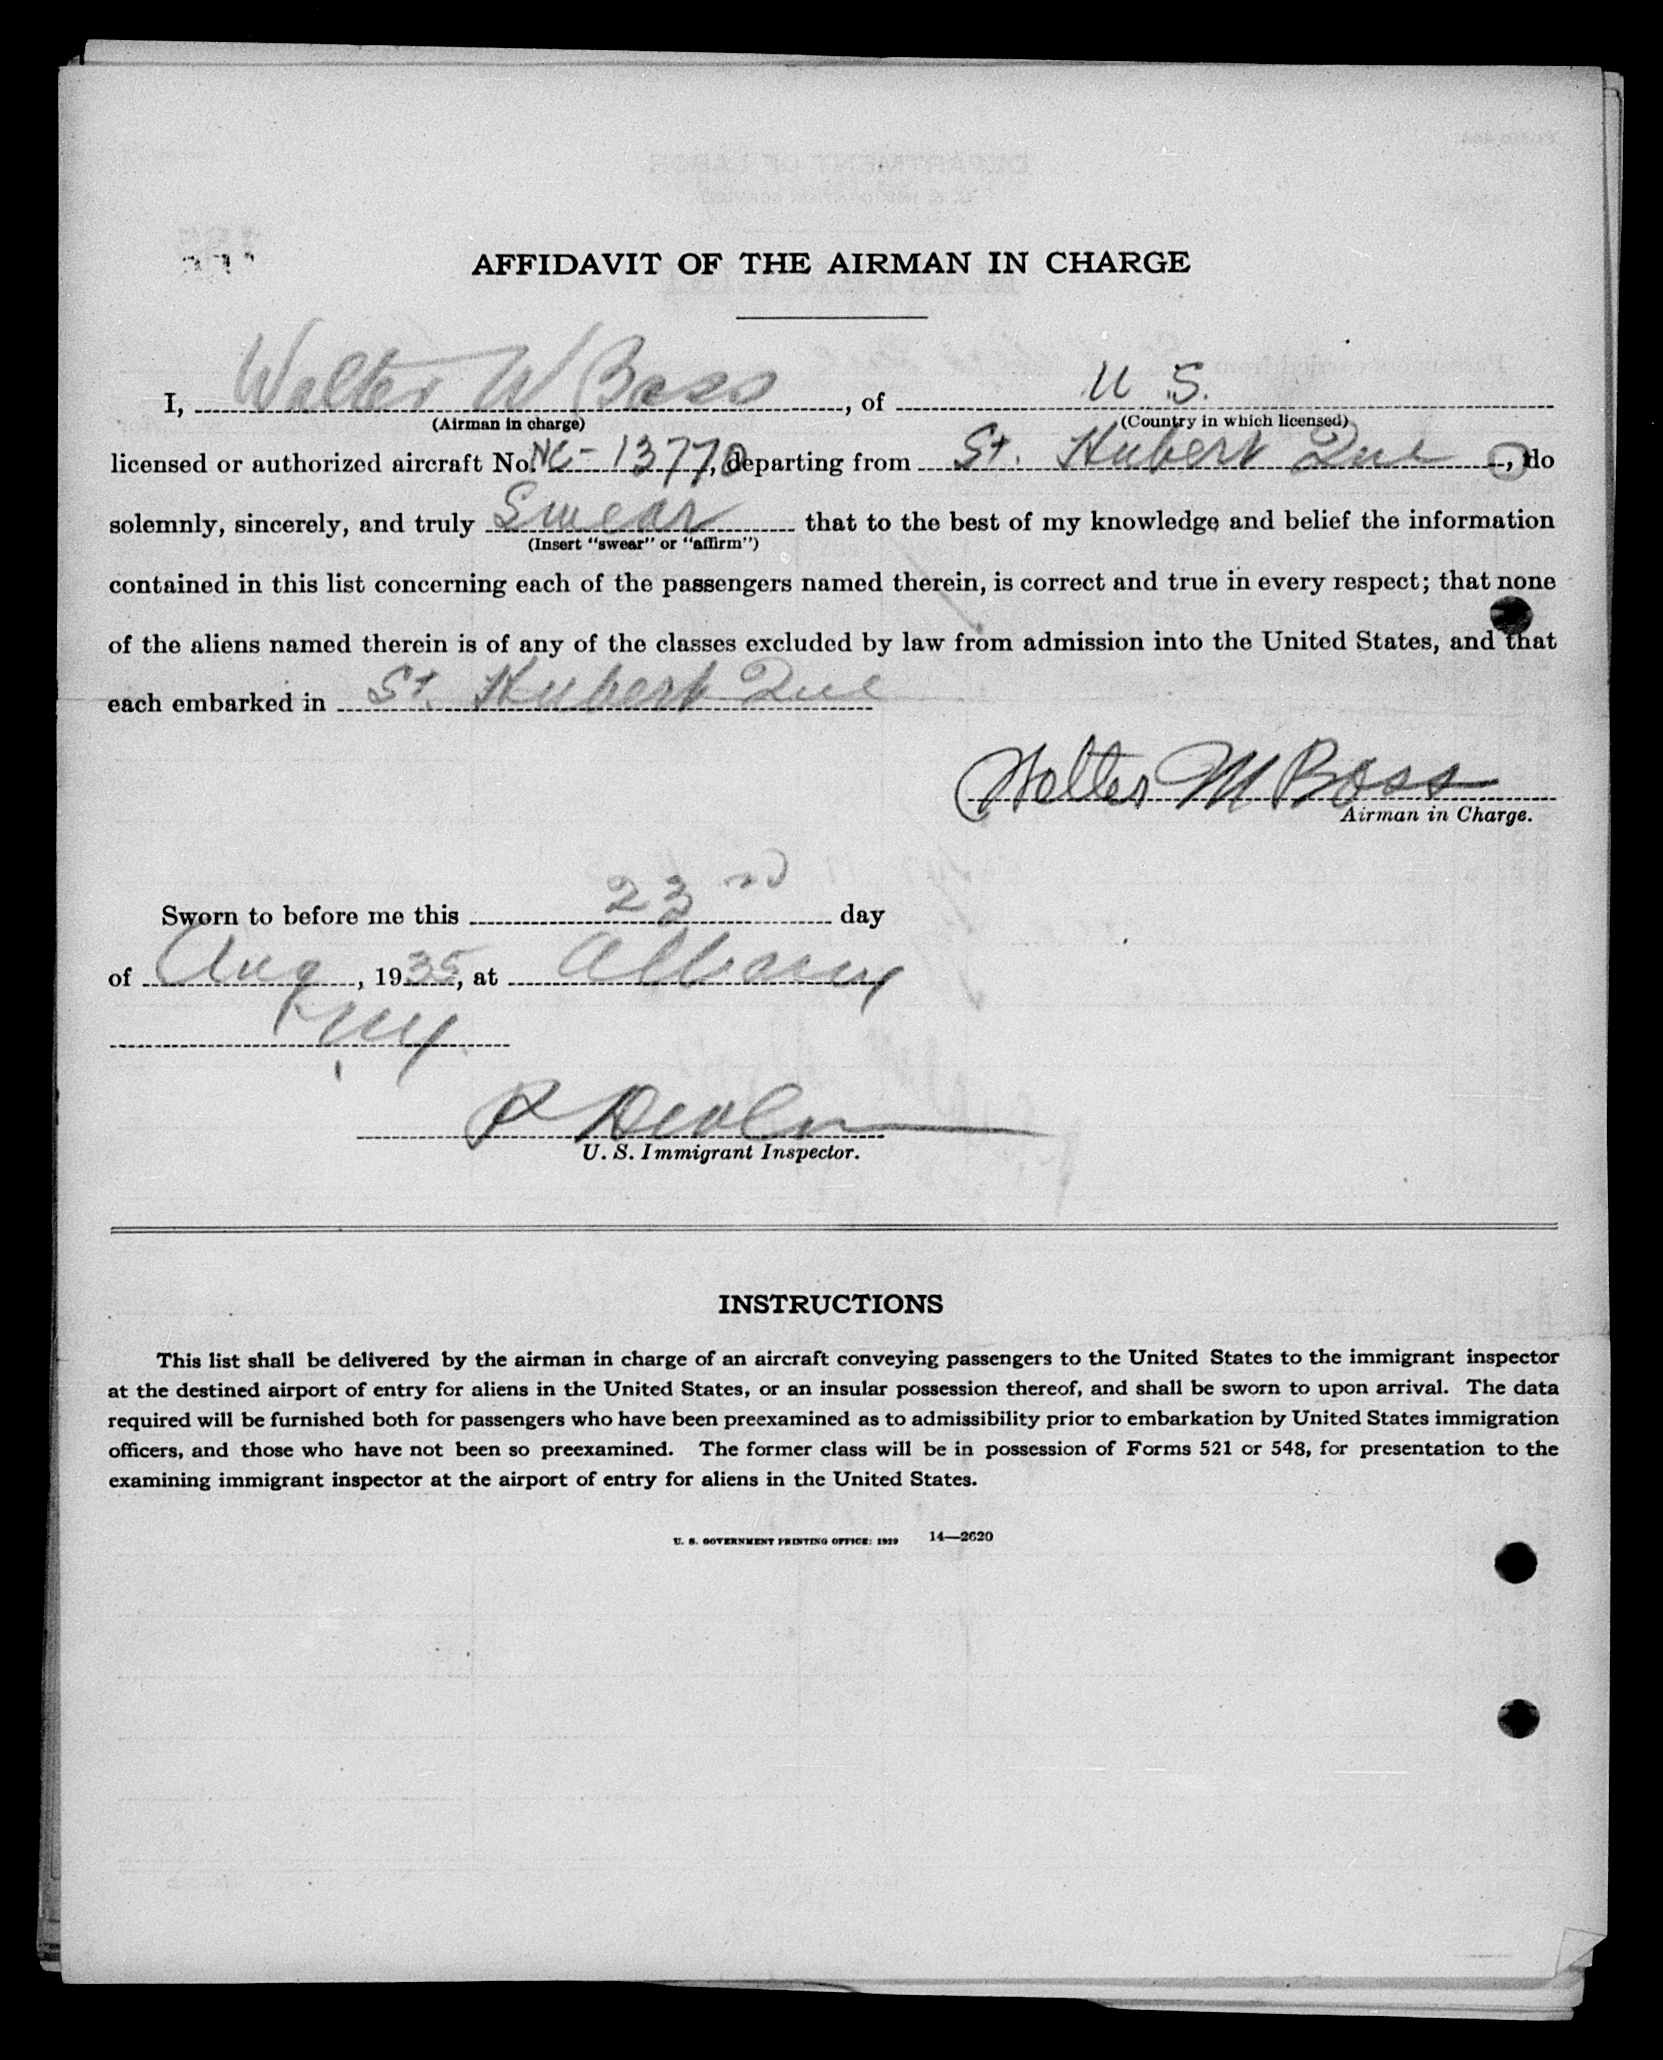 AFFIDAVIT OF THE AIRMAN IN CHARGE
I, Walter W Boss, of U. S.
(Airman in charge) (Country in which licensed)
licensed or authorized aircraft No. NC-13770, departing from St. Hubert Que, do
solemnly, sincerely, and truly Swear that to the best of my knowledge and belief the information
(Insert "swear" or "affirm")
contained in this list concerning each of the passengers named therein, is correct and true in every respect; that none
of the aliens named therein is of any of the classes excluded by law from admission into the United States, and that
each embarked in St. Hubert Que
Walter M Boss
Airman in Charge.
Sworn to before me this 23rd day
of Aug, 1935, at Albany
N.Y.
P Devlin
U. S. Immigrant Inspector.
INSTRUCTIONS
This list shall be delivered by the airman in charge of an aircraft conveying passengers to the United States to the immigrant inspector
at the destined airport of entry for aliens in the United States, or an insular possession thereof, and shall be sworn to upon arrival. The data
required will be furnished both for passengers who have been preexamined as to admissibility prior to embarkation by United States immigration
officers, and those who have not been so preexamined. The former class will be in possession of Forms 521 or 548, for presentation to the
examining immigrant inspector at the airport of entry for aliens in the United States.
U. S. GOVERNMENT PRINTING OFFICE: 1929 14—2620